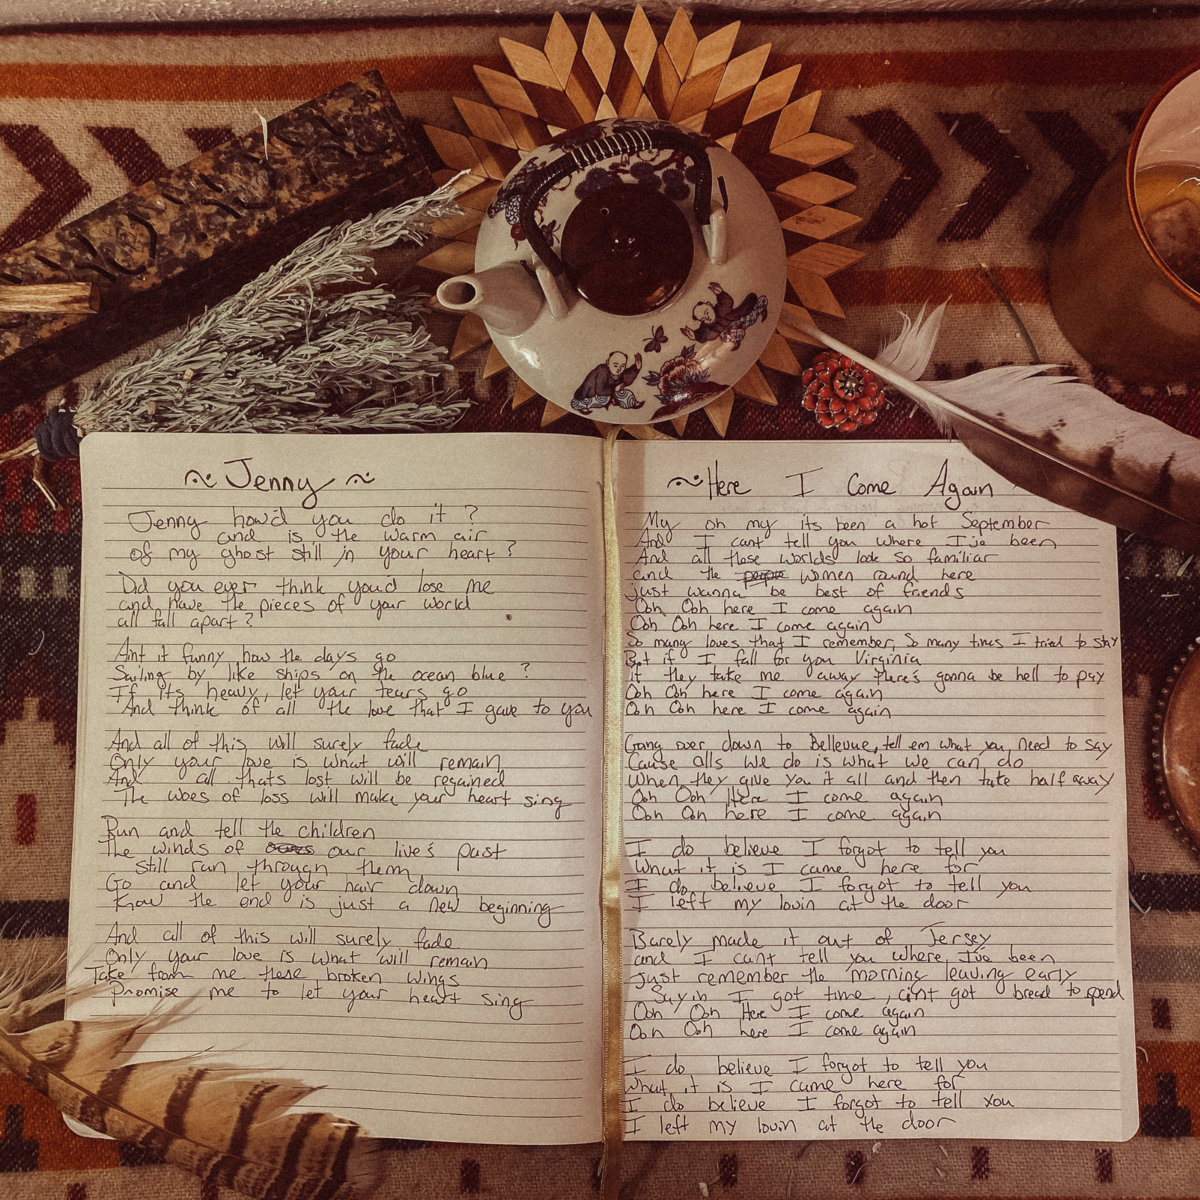 Jenny
Jenny how'd you do it ?
and is the warm air
of my ghost still in your heart ?
Did you ever think you'd lose me
and have the pieces of your world
all fall apart ?
Aint it funny how the days go
Sailing by like ships on the ocean blue ?
If its heavy, let your tears go
And think of all the love that I gave to you
And all of this will surely fade
Only your love is what will remain
And all thats lost will be regained
The woes of loss will make your heart sing
Run and tell the children
The winds of our live's past
still run through them
Go and let your hair down
Know the end is just a new beginning
And all of this will surely fade
Only your love is what will remain
Take from me these broken wings
Promise me to let your heart sing
Here I Come Again
My oh my its been a hot September
And I cant tell you where I've been
And all these worlds look so familiar
and the people women round here
just wanna be best of friends
Ooh Ooh here I come again
Ooh Ooh here I come again
So many loves that I remember, So many times I tried to stay
But if I fall for you Virginia
If they take me away there's gonna be hell to pay
Ooh Ooh here I come again
Ooh Ooh here I come again
Going over down to Bellevue, tell em what you need to say
Cause alls we do is what we can do
When they give you it all and then take half away
Ooh Ooh Here I come again
Ooh Ooh here I come again
I do believe I forgot to tell you
What it is I came here for
I do believe I forgot to tell you
I left my lovin at the door
Barely made it out of Jersey
and I can't tell you where I've been
Just remember the morning leaving early
Sayin I got time, aint got bread to spend
Ooh Ooh Here I come again
Ooh Ooh here I come again
I do believe I forgot to tell you
What it is I came here for
I do believe I forgot to tell you
I left my lovin at the door